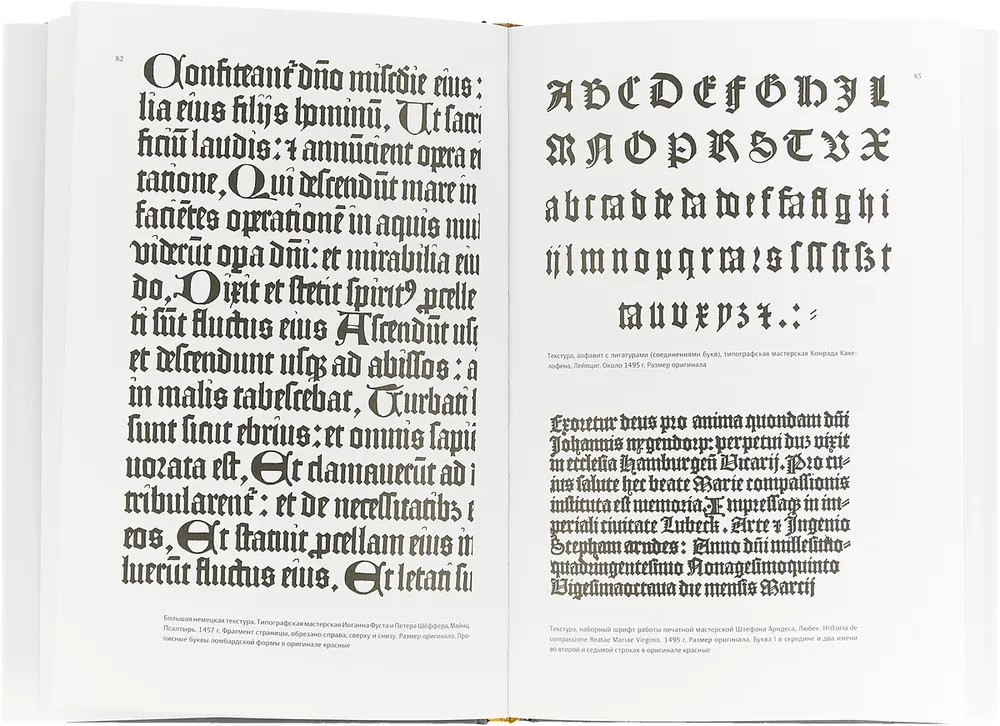 82
Confiteant᷑ dño misc̄die eius :
lia eius filijs hominū, Ut sacri
ficiū laudis : ⁊ annūcient opera ei
tatione, Qui descendūt mare in
faciētes operationē in aquis mul
viderūt opa dñi : et mirabilia eiu
do, Dixit et stetit spiritꝰ ꝓcelle
ti sūt fluctus eius Ascendūt usq
et descendunt usqꝫ ad abissos : a
in malis tabescebat, Turbati s
sunt sicut ebrius : et omnis sapiē
uorata est, Et clamauerūt ad
tribularent᷑ : et de necessitatibꝫ e
eos, Et statuit ꝓcellam eius in
luerūt fluctus eius. Et letati su
Большая немецкая текстура. Типографская мастерская Иоганна Фуста и Петера Шёффера, Майнц.
Псалтырь. 1457 г. Фрагмент страницы, обрезано справа, сверху и снизу. Размер оригинала. Про-
писные буквы ломбардской формы в оригинале красные
83
A B C D E F G H I L
M N O P R S T V X
a b c ca d de da do e f fa fl g h i
ij l m n o p q r ra ꝛ s ſ ſſ ſt ß t
ta u v x y z ꝫ ⁊ . : ⸗
Текстура, алфавит с лигатурами (соединениями букв), типографская мастерская Конрада Кахе-
лофена, Лейпциг. Около 1495 г. Размер оригинала
Exoretur deus pro anima quondam dñi
Johannis nygendorp: perpetui duꝫ vixie
in ecclesia Hamburgeñ Vicarij. Pro cu⸗
ius salute hec beate Marie compassionis
instituta est memoria. Impressaqꝫ in im⸗
periali ciuitate Lubeck. Arte ⁊ Ingenio
Stephani arndes : Anno dñi millesimo⸗
quadringentesimo Nonagesimoquinto
Vigesimaoctaua die mensis Marcij
Текстура, наборный шрифт работы печатной мастерской Штефана Арндеса, Любек. Historia de
compassione Beatae Mariae Virginis. 1495 г. Размер оригинала. Буква I в середине и два имени
во второй и седьмой строках в оригинале красные